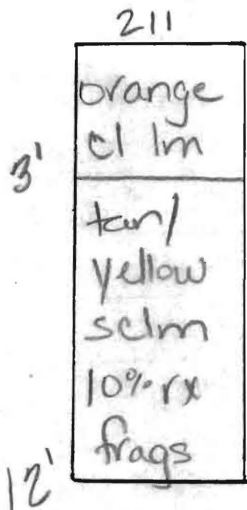 211
orange
cl lm
3'
tan/
yellow
sclm
10% rx
frags
12'